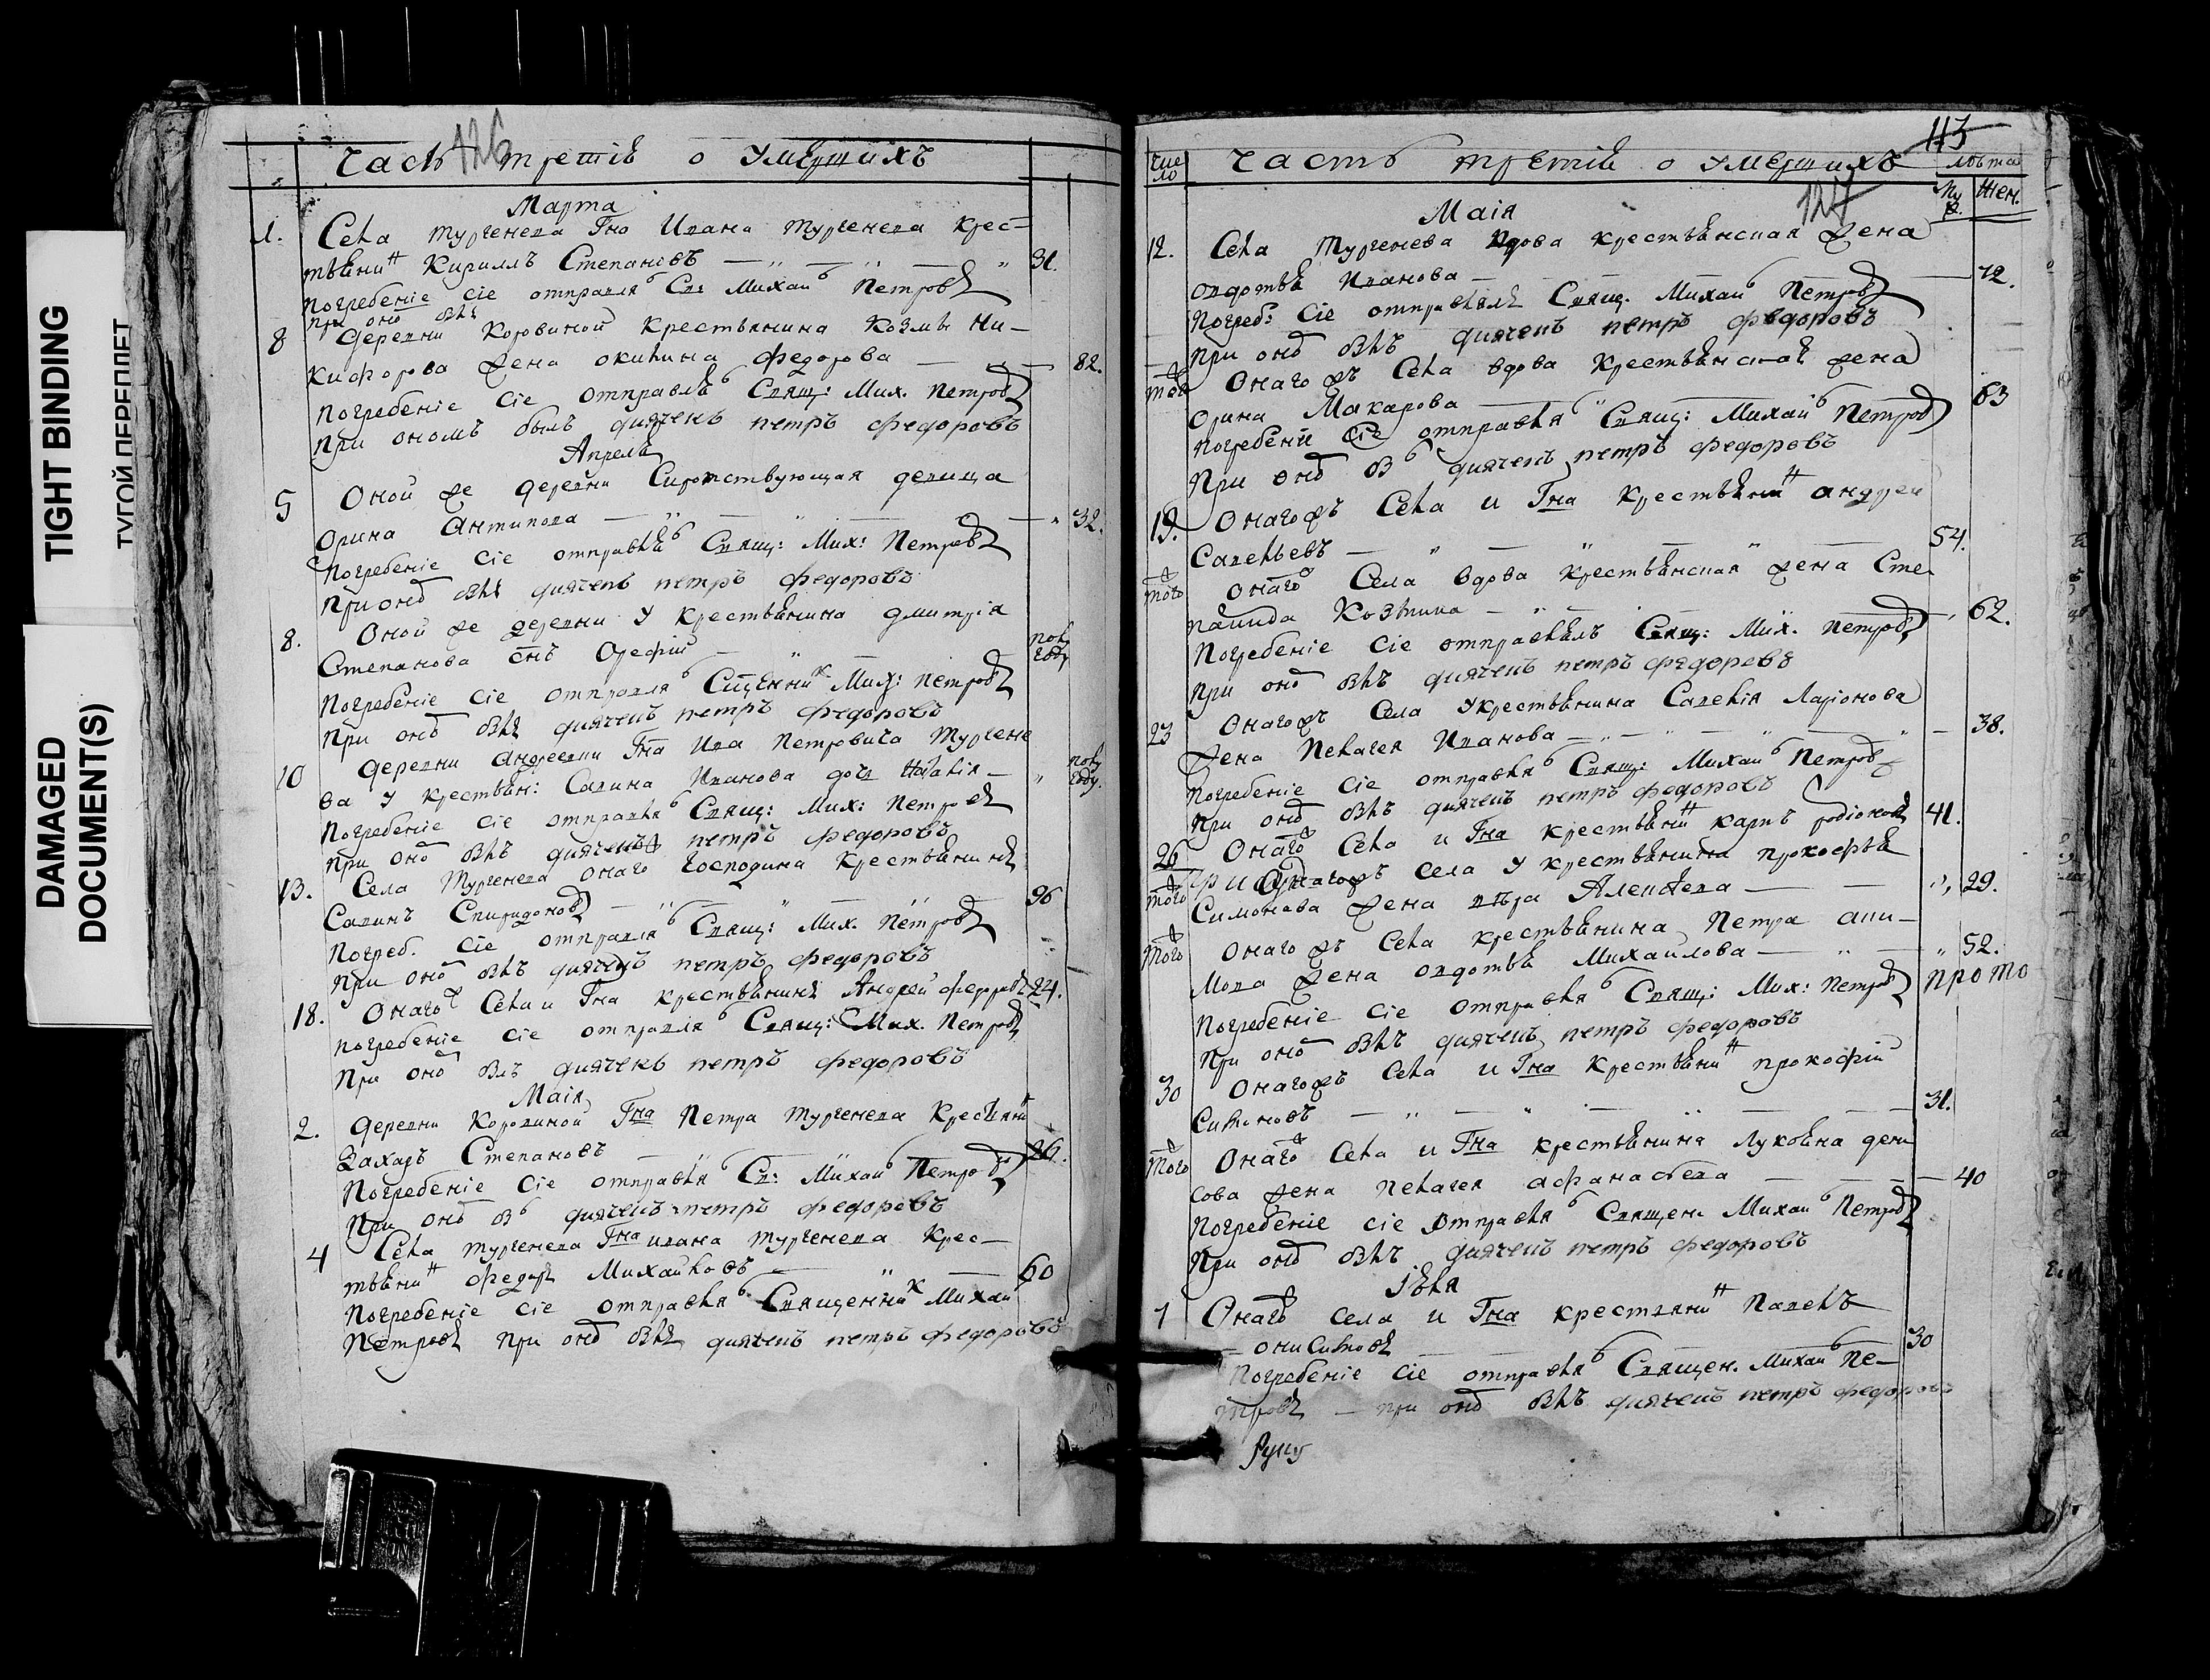 TIGHT BINDING
ТУГОЙ ПЕРЕПЛЕТ
DAMAGED
DOCUMENT(S)
126
Часть третія о Умершихъ
Марта
1. Села Тургенева Гна Ивана Тургенева крес-
тьянин Кирилъ Степановъ 31.
Погребеніе сіе отправлял Св: Михаил Петровъ
при оно былъ
8 Деревни Коровиной крестьянина Козмы Ни-
кифорова жена Акилина Федорова 82.
Погребеніе сіе отправлялъ Свящ: Мих. Петровъ
При ономъ былъ диячекъ петръ федоровъ
Апреля
5 Оной же деревни Сиротствующая девица
Орина Антипова 32.
Погребеніе сіе отправлял Свящ: Мих: Петровъ
При оно былъ диячекъ петръ федоровъ
8. Оной же деревни У крестьянина дмитрія
Степанова снъ Орефій полу
году
Погребеніе сіе отправлял Сщенник Мих: петровъ
При оно былъ диячекъ петръ федоровъ
10 Деревни Андреевки Гна Ива Петровича Тургене
ва У крестьян: Савина Иванова дочь Наталія полу
году.
Погребеніе сіе отправлял Свящ: Мих: Петровъ
При оно былъ диячекъ петръ федоровъ
13. Села Тургенева онаго Господина Крестьянинъ
Савинъ Спиридоновъ 36
Погреб. сіе отправлял Свящ: Мих. Петровъ
При оно былъ диячекъ петръ федоровъ
18. Онаго Села и Гна крестьянинъ Андрей федоровъ 24.
Погребеніе сіе отправлял Свящ: Мих. Петровъ
При оно былъ диячекъ петръ федоровъ
Маія
2. Деревни Коровиной Гна Петра Тургенева Крестьянин
Захаръ Степановъ 26.
Погребеніе сіе отправлял Св: Михаил Петровъ
При оно был диячекъ петръ федоровъ
4 Села Тургенева Гна ивана Тургенева крес-
тьянин федоръ Михайловъ 60
Погребеніе сіе отправлял Священник Михаи
Петровъ при оно былъ диячекъ петръ федоровъ
113
127
Число Часть третія о Умершихъ лѣта
Му Жен.
Маія
12. Села Тургенева вдова крестьянская жена
овдотья Иванова 72.
Погреб: сіе отправлялъ Свящ. Михаил Петровъ
При оно былъ диячекъ петръ федоровъ
того Онаго жъ Села вдова крестьянская жена
Орина Макарова 63
Погребени сіе отправлял Свящ: Михаил Петровъ
При оно был диячекъ петръ федоровъ
19. Онаго жъ Села и Гна крестьянин андреи
Савельевъ 54.
того онаго Села вдова крестьянская жена Сте
панида Козмина 62.
Погребеніе сіе отправлялъ Свящ: Мих. петровъ
При оно былъ диячекъ петръ федоровъ
23 Онаго жъ Села У крестьянина Савелія Ларіонова
Жена Пелагея Иванова 38.
Погребеніе сіе отправлял Свящ: Михаил Петровъ
При оно былъ диячекъ петръ федоровъ
26 Онаго Села и Гна крестьянин карпъ родіоновъ 41.
того Онаго жъ села У крестьянина прокофья
Симонова жена Алексѣева 29.
того Онаго жъ Села крестьянина Петра аки-
мова жена овдотья Михаилова 52.
Погребеніе сіе отправлял Свящ: Мих: петровъ прото
При оно былъ диячекъ петръ федоровъ
30 Онаго жъ Села и Гна Крестьянин прокофіи
Симоновъ 31.
того Онаго Села и Гна крестьянина Лукояна дени
сова жена пелагея афанасьева 40
Погребеніе сіе отправлял Священ Михаил Петровъ
При оно былъ диячекъ петръ федоровъ
1 Онаго села и Гна крестьянин Павелъ
онисимовъ 30
Погребеніе сіе отправлял Священ. Михаил Пе-
тровъ при оно былъ диячекъ петръ федоровъ
руку